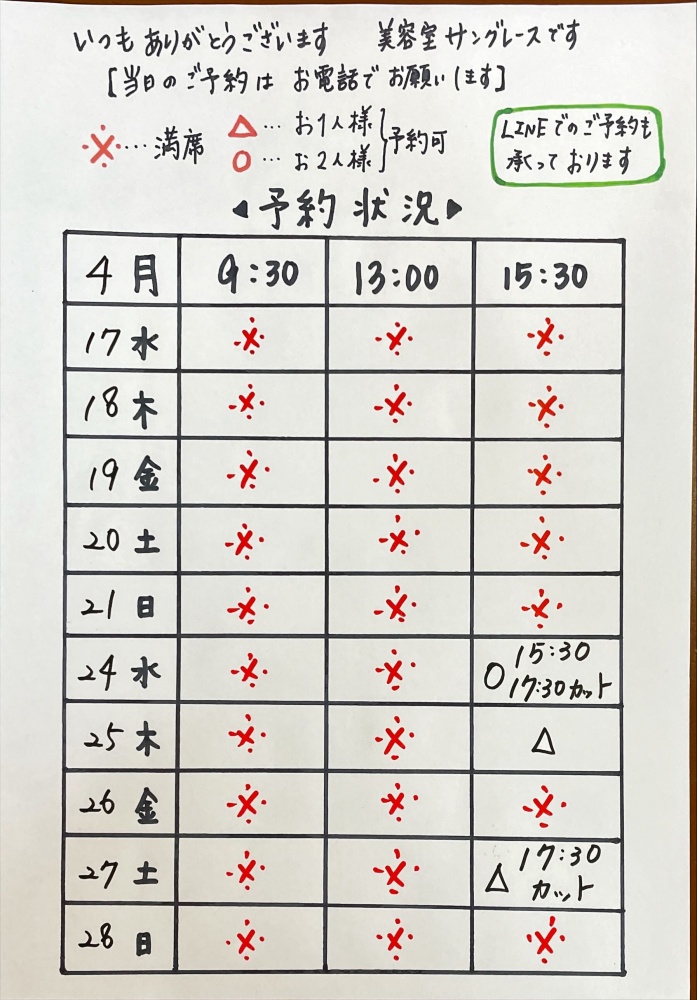 いつもありがとうございます 美容室サングレースです
[当日のご予約は お電話でお願いします]
※…満席 △…お1人様 ○…お2人様 予約可
LINEでのご予約も
承っております
◀予約状況▶
4月 9:30 13:00 15:30
17 水 ※ ※ ※
18 木 ※ ※ ※
19 金 ※ ※ ※
20 土 ※ ※ ※
21 日 ※ ※ ※
24 水 ※ ※ ○ 15:30 17:30カット
25 木 ※ ※ △
26 金 ※ ※ ※
27 土 ※ ※ △ 17:30 カット
28 日 ※ ※ ※